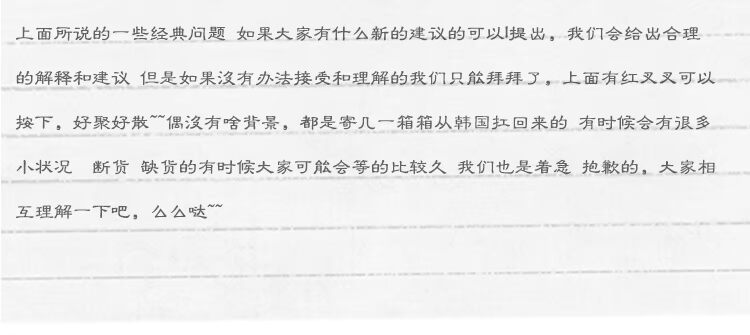 上面所说的一些经典问题 如果大家有什么新的建议的可以l提出。我们会给出合理
的解释和建议 但是如果沒有办法接受和理解的我们只能拜拜了。上面有红叉叉可以
按下。好聚好散~~偶沒有啥背景。都是寄几一箱箱从韩国扛回来的 有时候会有很多
小状况 断货 缺货的有时候大家可能会等的比较久 我们也是着急 抱歉的。大家相
互理解一下吧。么么哒~~